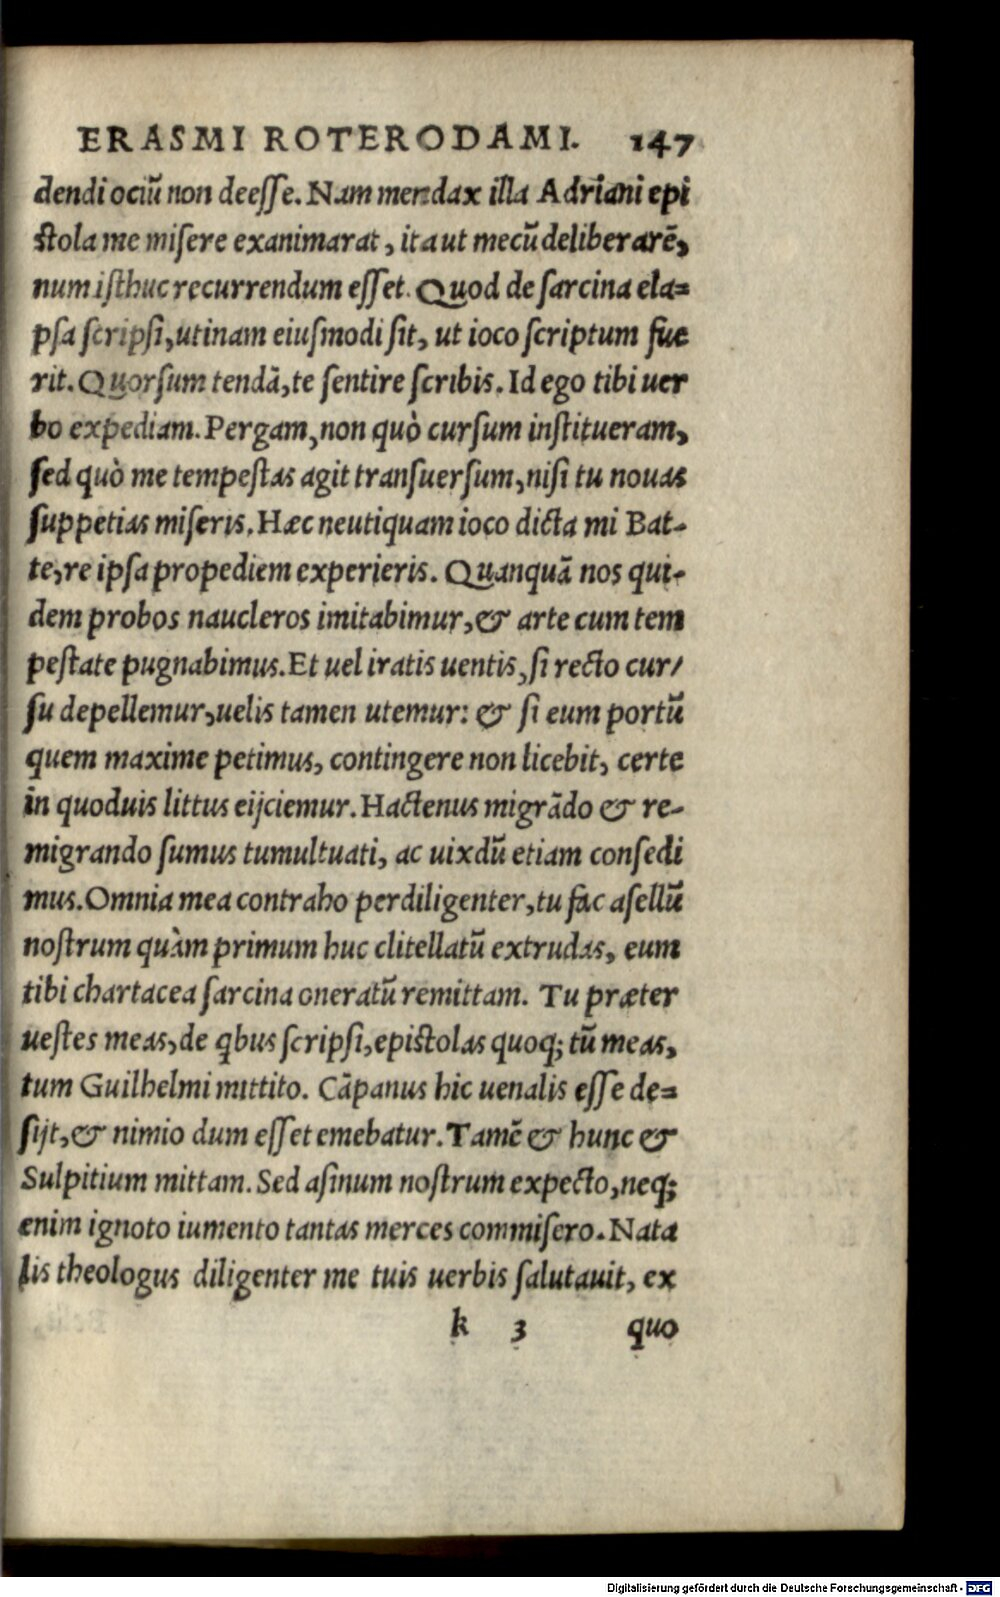 ERASMI ROTERODAMI. 147
dendi ociũ non deesse. Nam mendax illa Adriani epi
stola me misere exanimarat, ita ut mecũ deliberarẽ,
num isthuc recurrendum esset. Quod de sarcina ela=
psa scripsi, utinam eiusmodi sit, ut ioco scriptum fue
rit. Quorsum tendã, te sentire scribis. Id ego tibi uer
bo expediam. Pergam, non quò cursum institueram,
sed quò me tempestas agit transuersum, nisi tu nouas
suppetias miseris. Hæc neutiquam ioco dicta mi Bat-
te, re ipsa propediem experieris. Quanquã nos qui-
dem probos naucleros imitabimur, & arte cum tem
pestate pugnabimus. Et uel iratis uentis, si recto cur/
su depellemur, uelis tamen utemur: & si eum portũ
quem maxime petimus, contingere non licebit, certe
in quoduis littus eijciemur. Hactenus migrãdo & re-
migrando sumus tumultuati, ac uixdũ etiam consedi
mus. Omnia mea contraho perdiligenter, tu fac asellũ
nostrum quàm primum huc clitellatũ extrudas, eum
tibi chartacea sarcina oneratũ remittam. Tu præter
uestes meas, de qbus scripsi, epistolas quoq; tũ meas,
tum Guilhelmi mittito. Cãpanus hic uenalis esse de=
sijt, & nimio dum esset emebatur. Tamẽ & hunc &
Sulpitium mittam. Sed asinum nostrum expecto, neq;
enim ignoto iumento tantas merces commisero. Nata
lis theologus diligenter me tuis uerbis salutauit, ex
k 3 quo
Digitalisierung gefördert durch die Deutsche Forschungsgemeinschaft - DFG